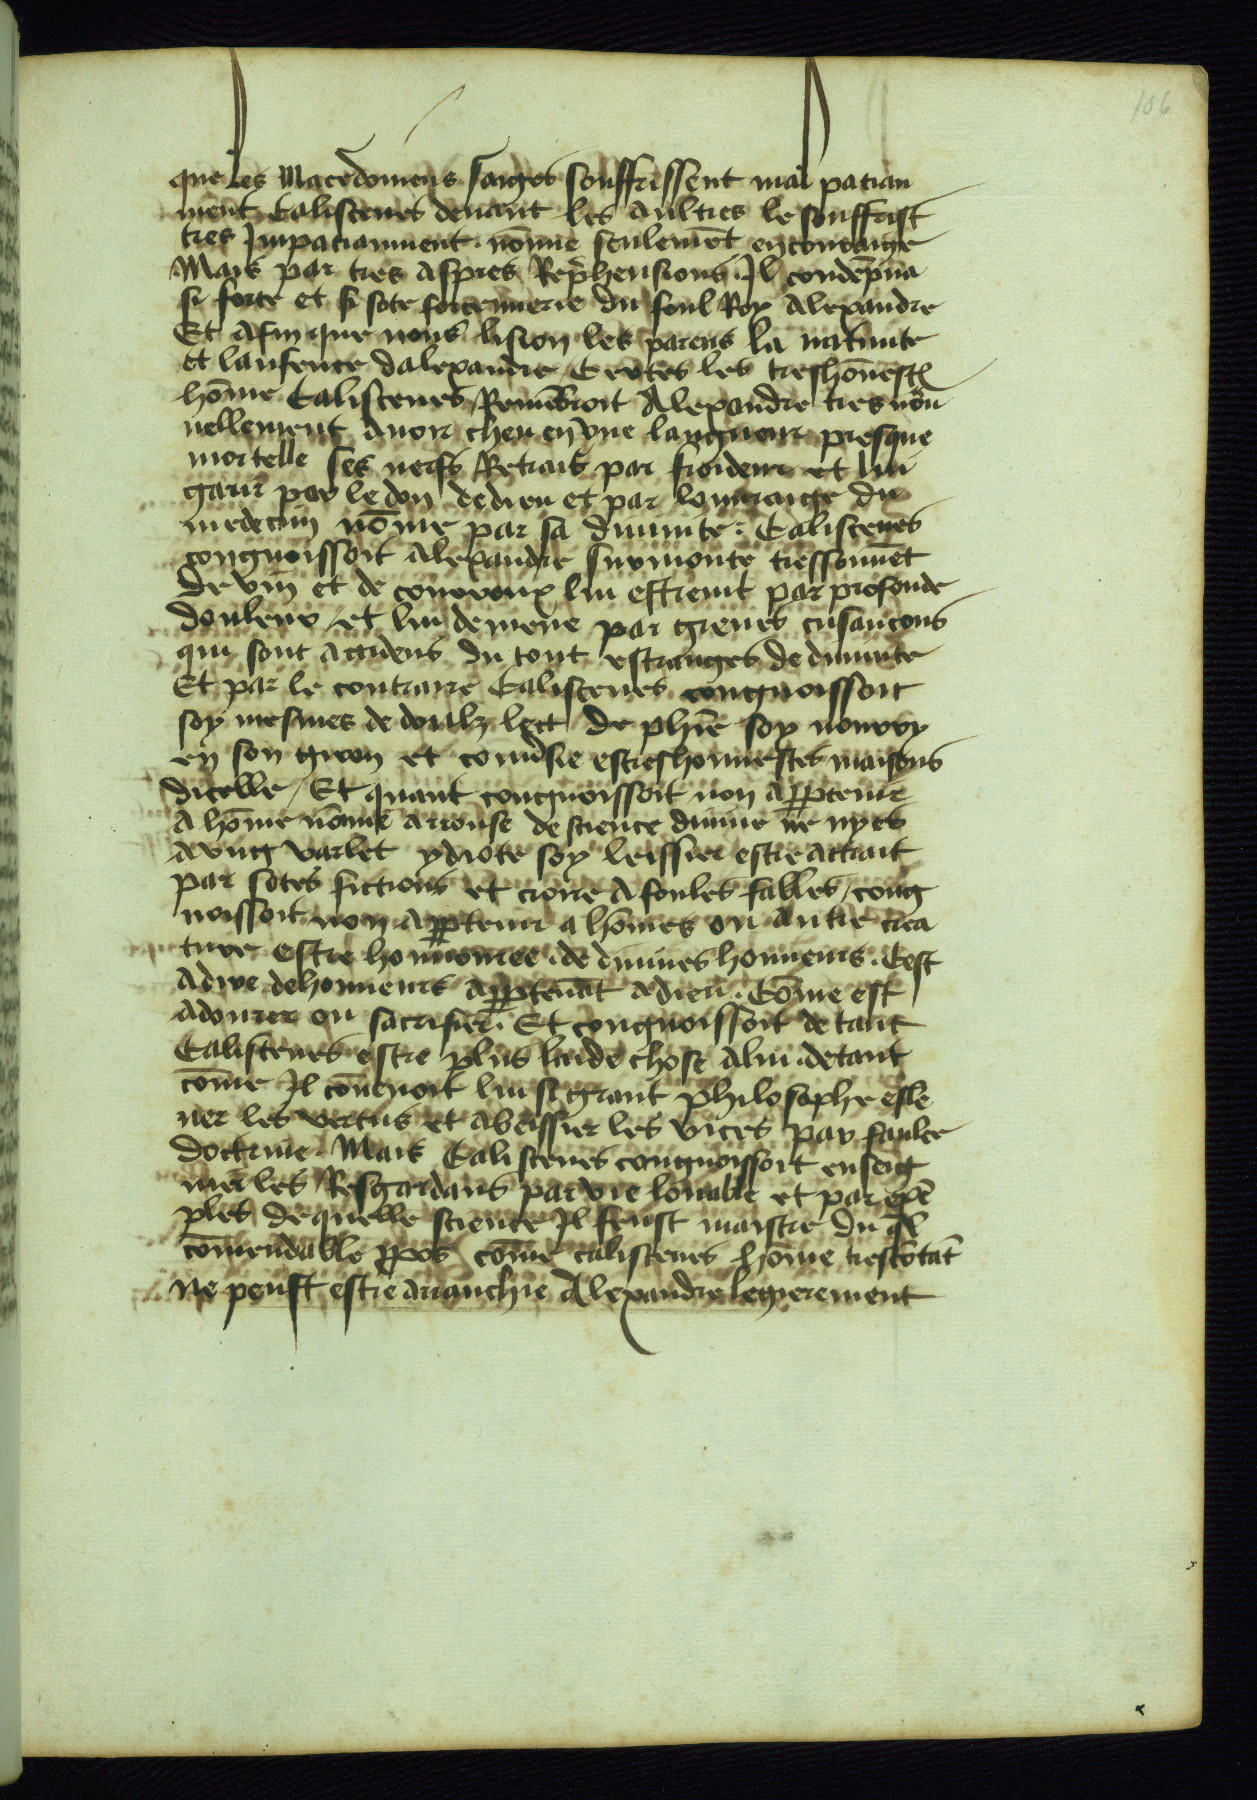 106
que les Macedoniens saiges souffrissent mal pacian
ment Calistenes deuant les aultres le souffrist
tres Jmpacianment. nōmie seulemēt en couraige
Mais par tres aspres Rep̄hensions. Jl condēpna
si forte et si sote forcennerie du foul Roy Alexandre
Et afin que nous lision les parens la natiuite
et lanfence dalexandre Certes les treshōneste
hōme Calistenes Remēbroit Alexandre tres nou
uellement auoir cheu en vne langueur presque
mortelle ses nerfs Retrais par froideur et lui
garir par le don de dieu et par louuraige du
medecin nōmie par sa diuinite: Calistenes
congnoissoit alexandre surmonte tressouuēt
de vin et de courroux lui estreint par profonde
douleur et lui demene par grieues cusancons
qui sont accidens du tout estranges de diuinite
Et par le contraire Calistenes congnoissoit
soy mesmes de doulz lect de phīe soy nourry
en son giron et es treshonnestes maisons
dicelle / Et quant congnoissoit non app̄tenir
a hōme nōmie arrouse de science diuine ne nyes
a vng varlet ydiote soy leissier estre attrait
par sotes fictions et croire a foules fables / cong
noissoit non app̄tenir a hōmes ou autre crea
ture estre honnouree de diuines honneurs. Cest
adire de honneurs app̄tenāt a dieu. Cōme est
adourer ou sacrifier. Et congnoissoit de tant
Calistenes estre plus laide chose a lui. de tant
cōme Jl conuenoit lui si grant philosophe esle
uer les vertus et abeissier les vices par faulte
doctrine. Mais Calistenes congnoissoit enseig
nier les Resgardans par vie louable et par exē
ples de quelle science Jl feust maistre du q̄l
cōmendable p̄pos cōme calistenes hōme trescōstāt
ne peust estre arranchie Alexandre legierement